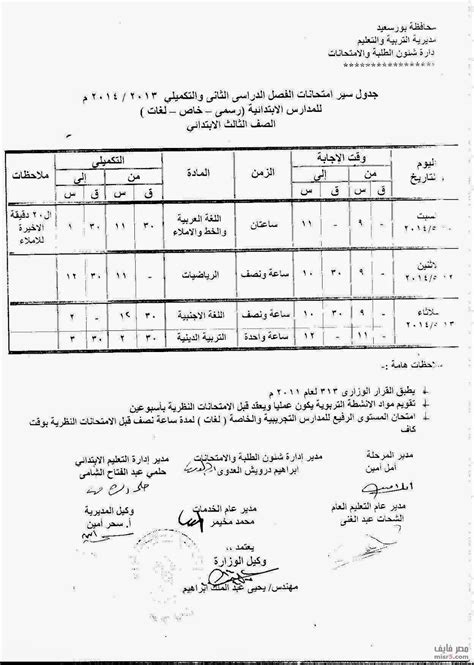 حافظة بورسعيد
مديرية التربية والتعليم
دارة شئون الطلبة والامتحانات
****************
جدول سير امتحانات الفصل الدراسى الثانى والتكميلي ٢٠١٣ / ٢٠١٤ م
للمدارس الابتدائية ( رسمى – خاص – لغات )
الصف الثالث الابتدائي
اليوم التاريخ وقت الإجابة الزمن المادة التكميلي ملاحظات
من إلى من إلى
س ق س ق س ق س ق
سبت ٩ - ١١ - ساعتان اللغة العربية والخط والاملاء ١١ ٣٠ ١ ٣٠ ال٢٠ دقيقة الاخيرة للاملاء
ثنين ٩ - ١٠ ٣٠ ساعة ونصف الرياضيات ١١ - ١٢ ٣٠
ثلاثاء ٩ - ١٠ ٣٠ ساعة ونصف اللغة الاجنبية ١٢ ٣٠ ٢ -
١١ - ١٢ - ساعة واحدة التربية الدينية ٢ ٣٠ ٣ ٣٠
لاحظات هامة :
يطبق القرار الوزارى ٣١٣ لعام ٢٠١١ م
تقويم مواد الانشطة التربوية يكون عمليا ويعقد قبل الامتحانات النظرية بأسبوعين
امتحان المستوى الرفيع للمدارس التجريبية والخاصة ( لغات ) لمدة ساعة نصف قبل الامتحانات النظرية بوقت
كاف
مدير المرحلة مدير إدارة شئون الطلبة والامتحانات مدير إدارة التعليم الابتدائي
أمل أمين ابراهيم درويش العدوى حلمي عبد الفتاح الشامى
مدير عام التعليم العام مدير عام الخدمات وكيل المديرية
الشحات عبد الغنى محمد مخيمر أ. سحر أمين
يعتمد ،،
وكيل الوزارة
مهندس/ يحيى عبد الملك ابراهيم
مصر فايف
misr5.com